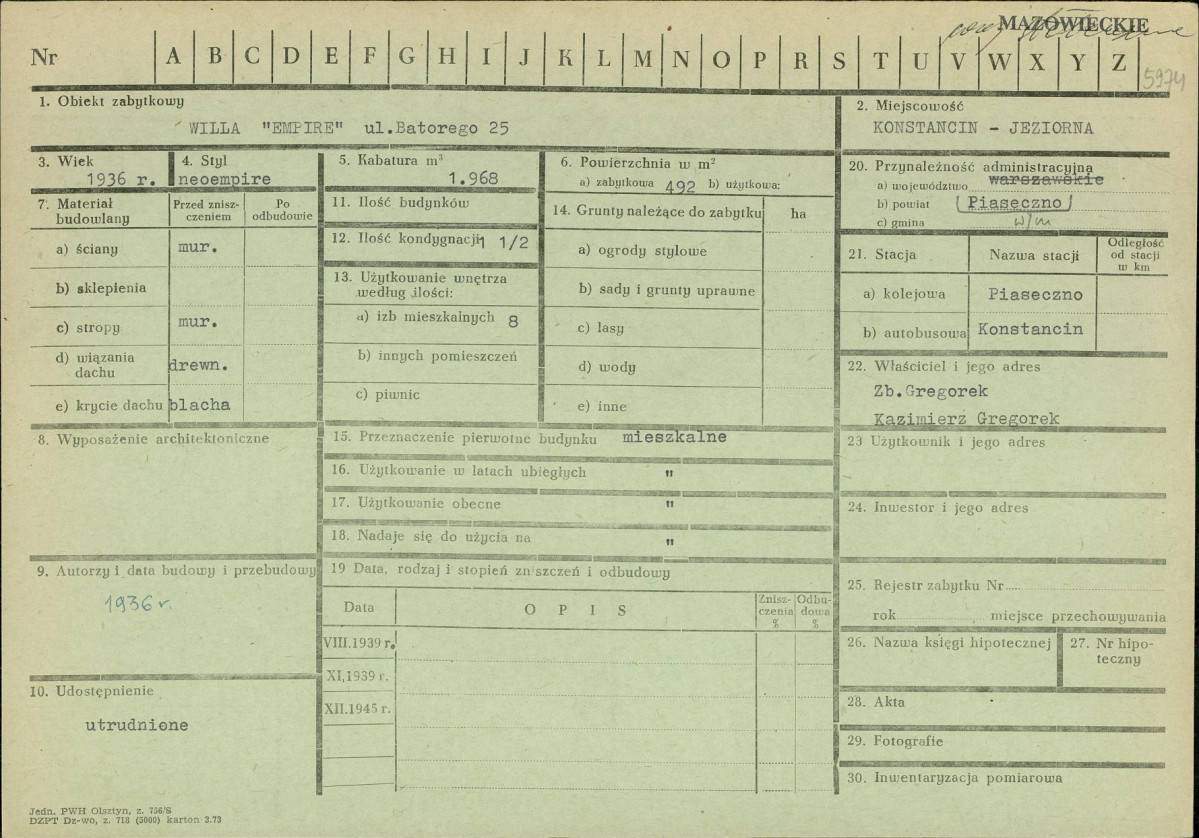 MAZOWIECKIE
Nr A B C D E F G H I J K L M N O P R S T U V W X Y Z
5974
1. Obiekt zabytkowy
WILLA "EMPIRE" ul.Batorego 25
2. Miejscowość
KONSTANCIN - JEZIORNA
3. Wiek
1936 r.
4. Styl
neoempire
5. Kabatura m³
1.968
6. Powierzchnia w m²
a) zabytkowa 492 b) użytkowa:
7. Materiał budowlany
Przed znisz-
czeniem
Po
odbudowie
a) ściany mur.
b) sklepienia
c) stropy mur.
d) wiązania
dachu drewn.
e) krycie dachu blacha
11. Ilość budynków
12. Ilość kondygnacji 1 1/2
13. Użytkowanie wnętrza
według ilości:
a) izb mieszkalnych 8
b) innych pomieszczeń
c) piwnic
14. Grunty należące do zabytku ha
a) ogrody stylowe
b) sady i grunty uprawne
c) lasy
d) wody
e) inne
20. Przynależność administracyjna
a) województwo warszawskie
b) powiat (Piaseczno)
c) gmina w/m
21. Stacja Nazwa stacji
Odległość
od stacji
w km
a) kolejowa Piaseczno
b) autobusowa Konstancin
22. Właściciel i jego adres
Zb.Gregorek
Kazimierz Gregorek
8. Wyposażenie architektoniczne
15. Przeznaczenie pierwotne budynku mieszkalne
16. Użytkowanie w latach ubiegłych "
17. Użytkowanie obecne "
18. Nadaje się do użycia na "
23 Użytkownik i jego adres
24. Inwestor i jego adres
9. Autorzy i data budowy i przebudowy
1936 r.
19 Data, rodzaj i stopień zniszczeń i odbudowy
Data O P I S
Znisz-
czenia
%
Odbu-
dowa
%
VIII.1939 r.
XI,1939 r.
XII.1945 r.
25. Rejestr zabytku Nr
rok miejsce przechowywania
26. Nazwa księgi hipotecznej
27. Nr hipo-
teczny
10. Udostępnienie
utrudnione
28. Akta
29. Fotografie
30. Inwentaryzacja pomiarowa
Jedn. PWH Olsztyn, z. 756/S
DZPT Dz-wo, z. 718 (5000) karton 3.73